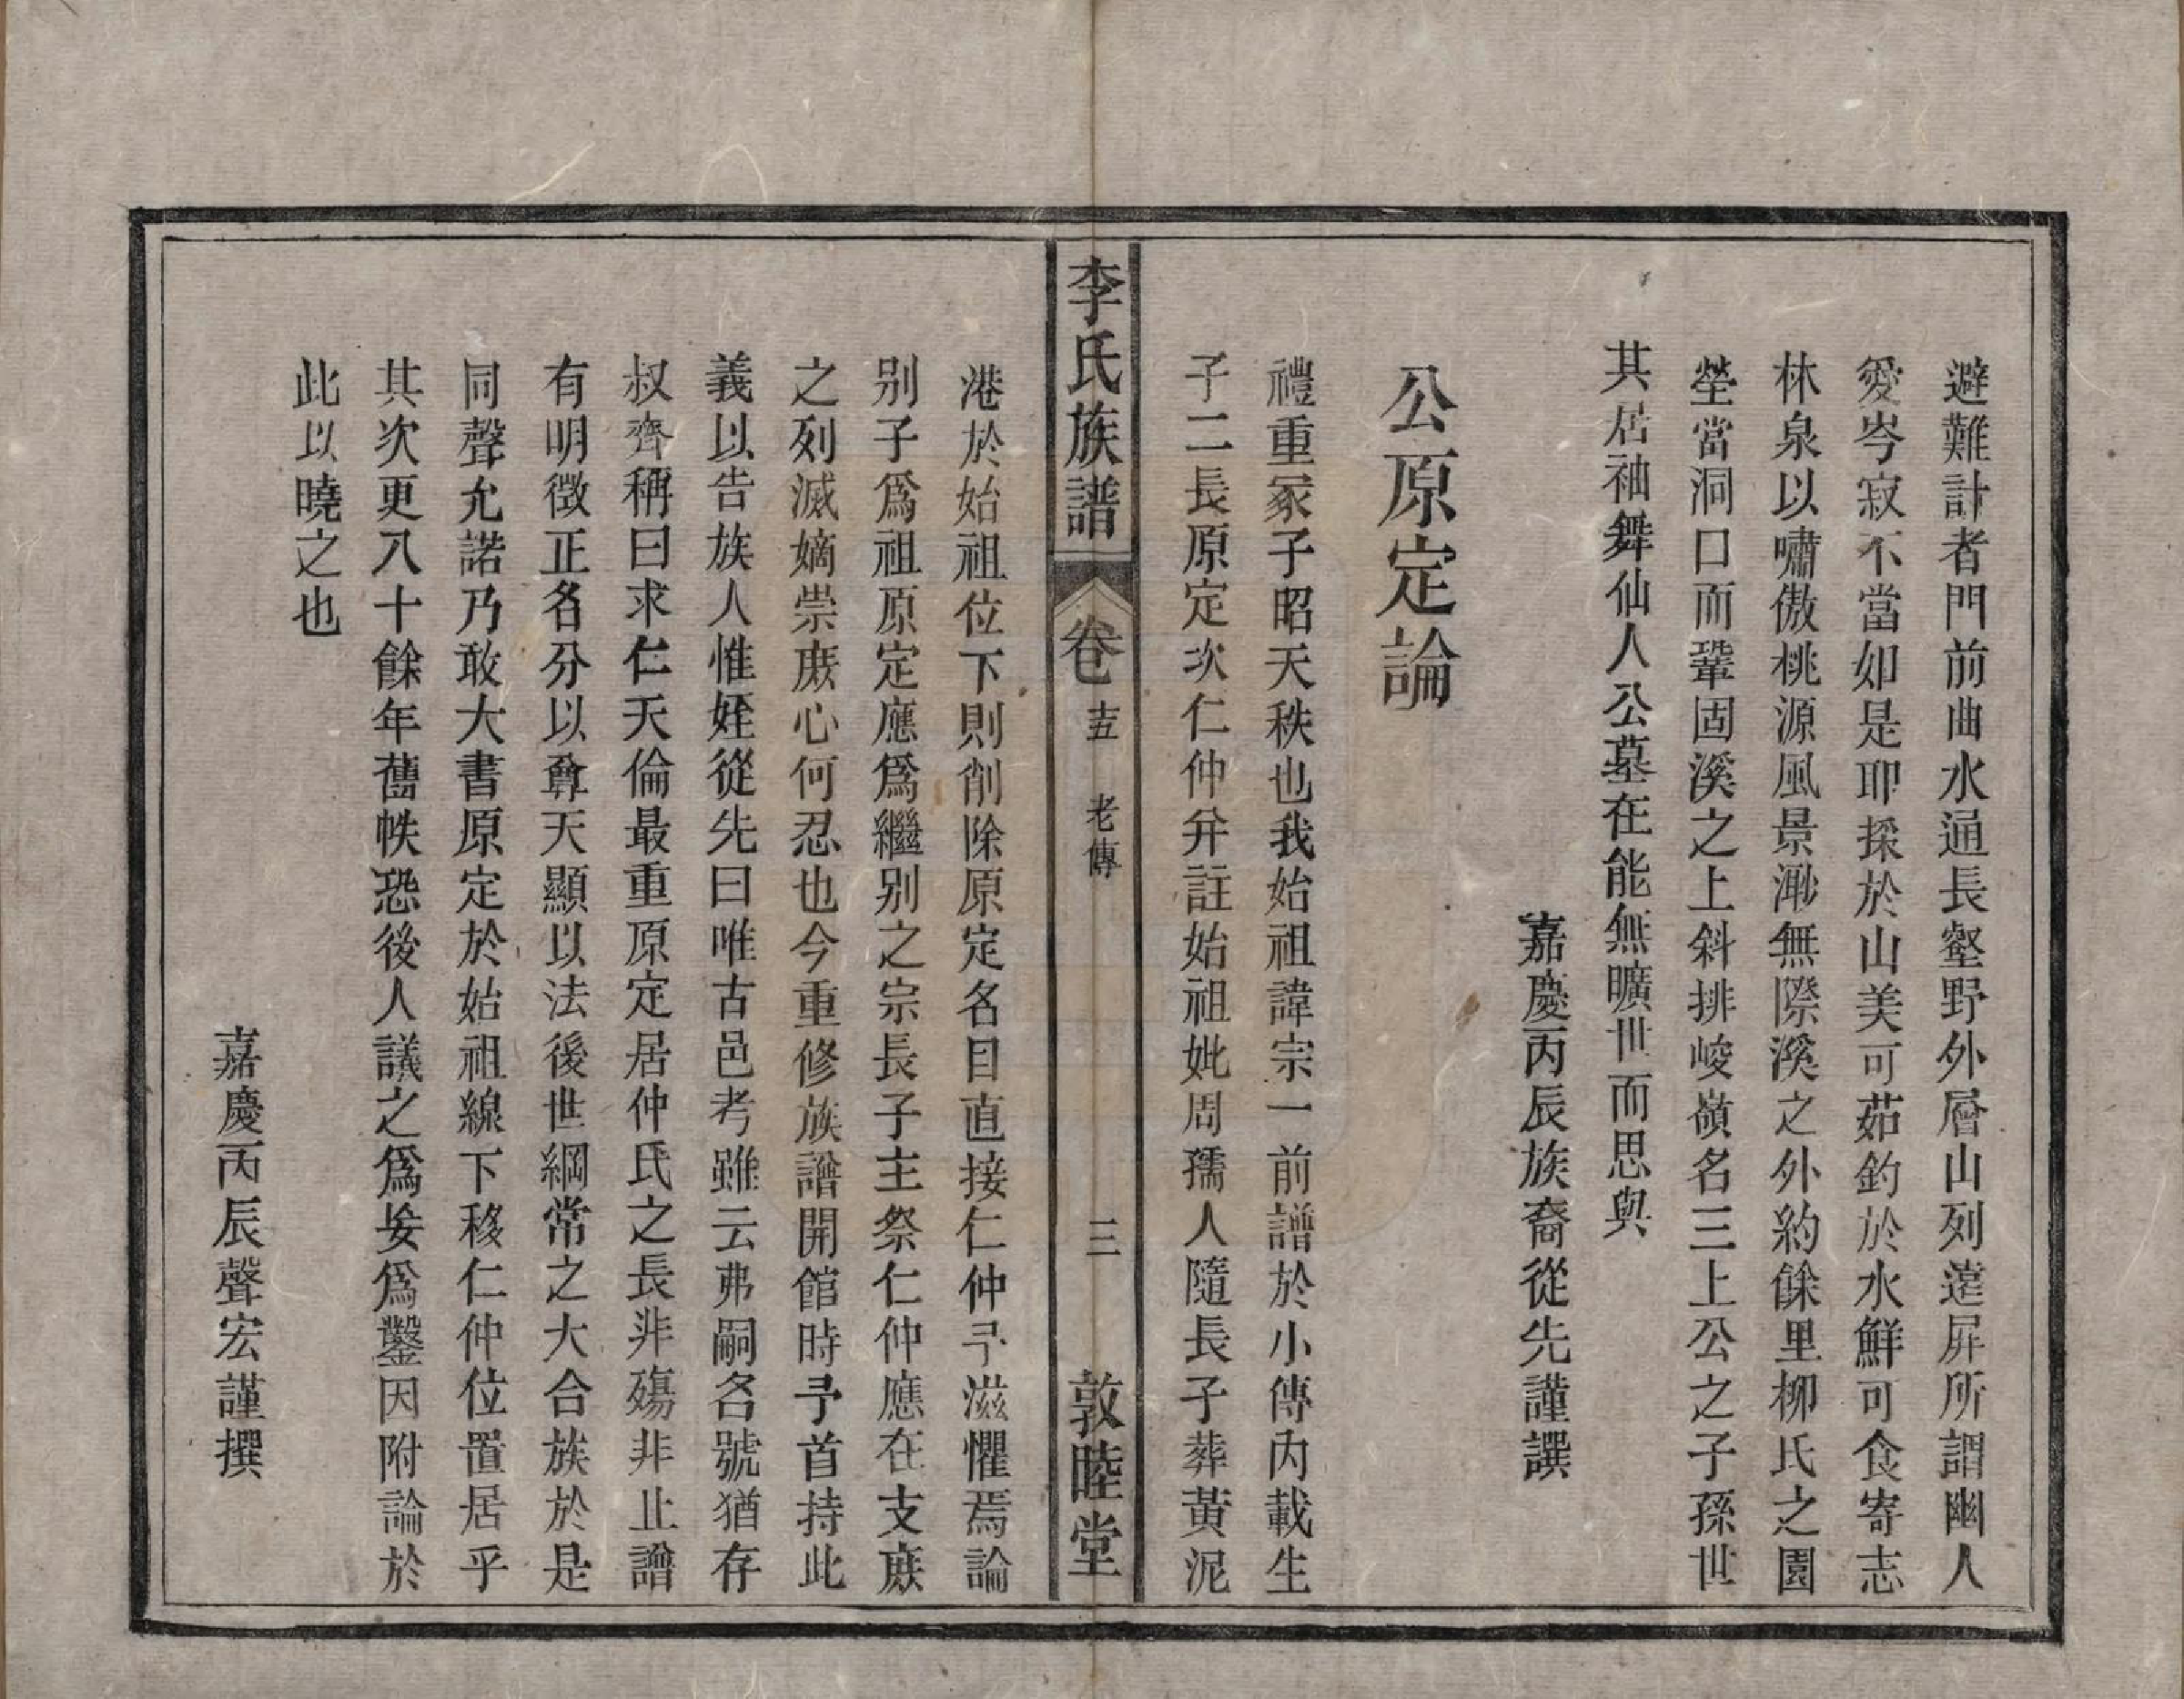 避難計者門前曲水通長壑野外層山列遶屛所謂幽人
愛岑寂不當如是耶採於山美可茹釣於水鮮可食寄志
林泉以嘯傲桃源風景渺無際溪之外約餘里柳氏之園
塋當洞口而鞏固溪之上斜排峻嶺名三上公之子孫世
其居袖舞仙人公墓在能無曠世而思與
嘉慶丙辰族裔從先謹譔
公原定論
禮重冢子昭天秩也我始祖諱宗一前譜於小傳內載生
子二長原定次仁仲并註始祖妣周孺人隨長子葬黃泥
李氏族譜
卷 十五 老傳
三
敦睦堂
港於始祖位下則削除原定名目直接仁仲予滋懼焉論
别子爲祖原定應爲繼别之宗長子主祭仁仲應在支庶
之列滅嫡崇庶心何忍也今重修族譜開館時予首持此
義以告族人惟姪從先曰唯古邑考雖云弗嗣名號猶存
叔齊稱曰求仁天倫最重原定居仲氏之長非殤非止譜
有明徵正名分以尊天顯以法後世綱常之大合族於是
同聲允諾乃敢大書原定於始祖線下移仁仲位置居乎
其次更八十餘年舊帙恐後人議之爲妄爲鑿因附論於
此以曉之也
嘉慶丙辰聲宏謹撰